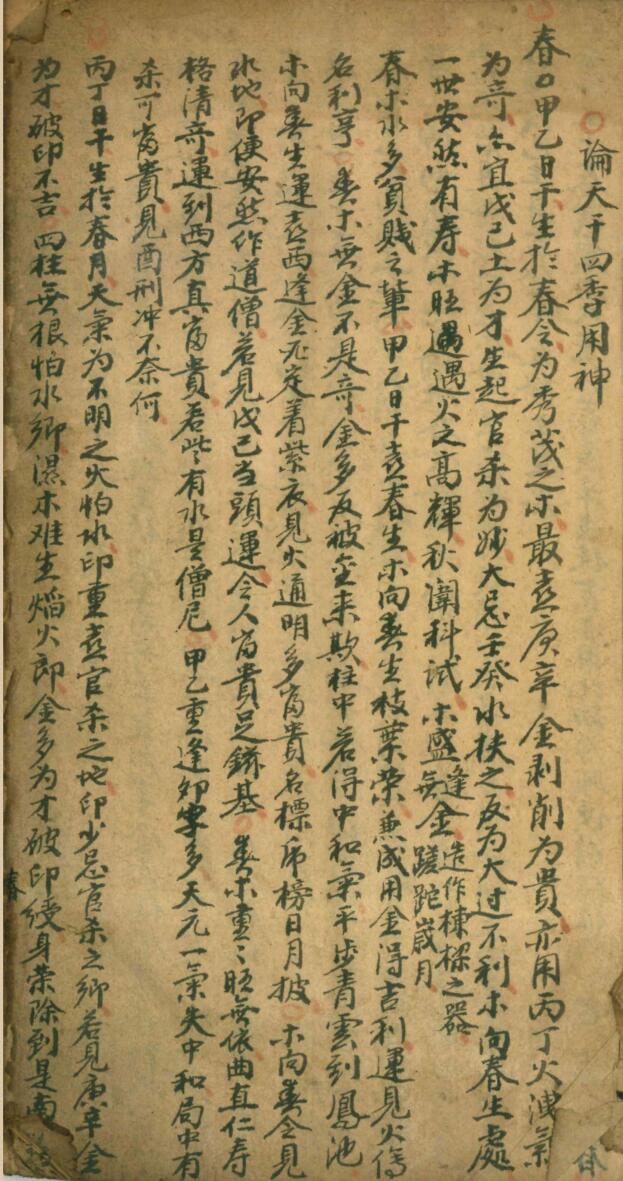 論天干四季用神
春〇甲乙日干生於春令为秀茂之木最喜庚辛金剥削为貴亦用丙丁火洩氣
为奇亦宜戊己土为才生起官杀为妙大忌壬癸水扶之反为大过不利木向春生處
一世安然有寿木旺遇遇火之高輝秋闈科試木盛逢金造作棟樑之器無金蹉跎歲月
春木水多貧贱之輩甲乙日干喜春生木向春生枝葉荣兼成用金得吉利運見火傷
名利亨春木無金不是奇金多反被金来欺柱中若得中和氣平步青雲到鳳池
木向春生運喜西逢金死定着紫衣見火通明多富貴名標帝榜日月披木向春令見
水地即便安然作道僧若見戊己当頭運令人富貴足鎡基春木重〻旺無依曲直仁寿
格清奇運到西方真富貴若些有水是僧尼甲乙重逢卯字多天元一氣失中和局中有
杀可富貴見酉刑冲不奈何
丙丁日干生於春月天氣为不明之火怕水印重喜官杀之地印少忌官杀之鄉若見庚辛金
为才破印不吉四柱無根怕水鄉濕木难生焰火郎金多为才破印綬身荣除到是南
春